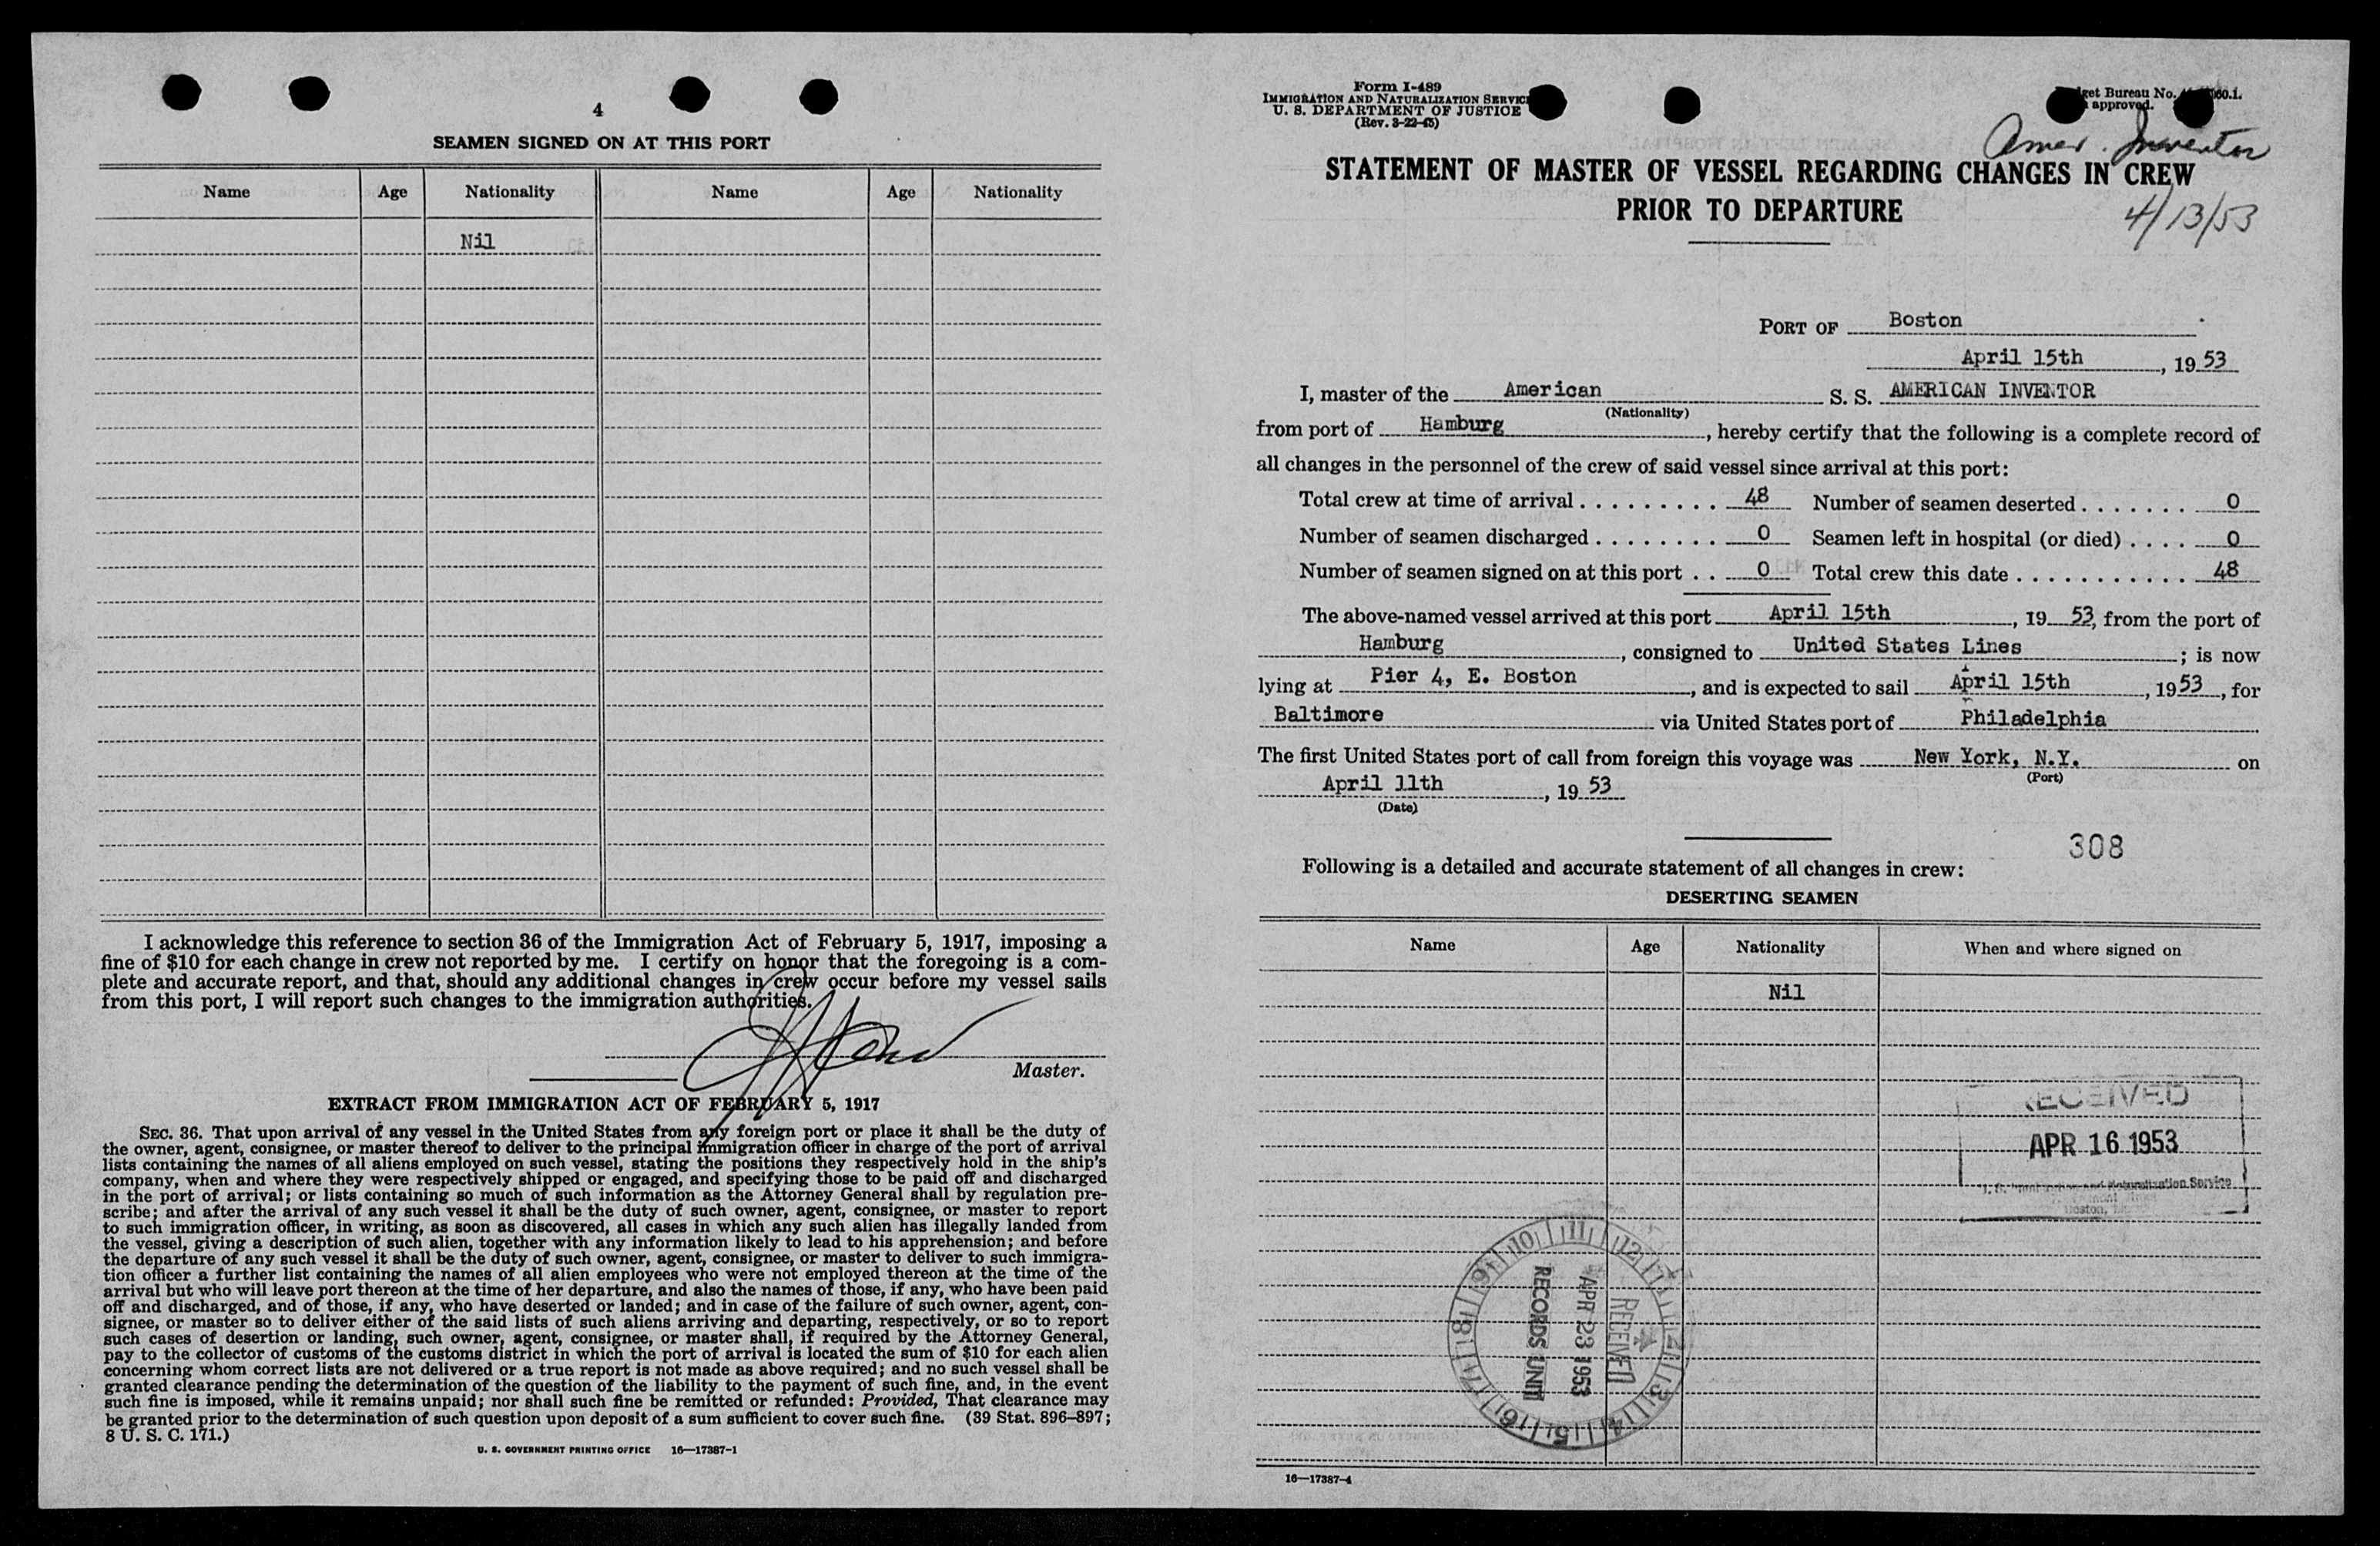 4
SEAMEN SIGNED ON AT THIS PORT
Name Age Nationality Name Age Nationality
Nil
I acknowledge this reference to section 36 of the Immigration Act of February 5, 1917, imposing a
fine of $10 for each change in crew not reported by me. I certify on honor that the foregoing is a com-
plete and accurate report, and that, should any additional changes in crew occur before my vessel sails
from this port, I will report such changes to the immigration authorities.
Master.
EXTRACT FROM IMMIGRATION ACT OF FEBRUARY 5, 1917
SEC. 36. That upon arrival of any vessel in the United States from any foreign port or place it shall be the duty of
the owner, agent, consignee, or master thereof to deliver to the principal immigration officer in charge of the port of arrival
lists containing the names of all aliens employed on such vessel, stating the positions they respectively hold in the ship's
company, when and where they were respectively shipped or engaged, and specifying those to be paid off and discharged
in the port of arrival; or lists containing so much of such information as the Attorney General shall by regulation pre-
scribe; and after the arrival of any such vessel it shall be the duty of such owner, agent, consignee, or master to report
to such immigration officer, in writing, as soon as discovered, all cases in which any such alien has illegally landed from
the vessel, giving a description of such alien, together with any information likely to lead to his apprehension; and before
the departure of any such vessel it shall be the duty of such owner, agent, consignee, or master to deliver to such immigra-
tion officer a further list containing the names of all alien employees who were not employed thereon at the time of the
arrival but who will leave port thereon at the time of her departure, and also the names of those, if any, who have been paid
off and discharged, and of those, if any, who have deserted or landed; and in case of the failure of such owner, agent, con-
signee, or master so to deliver either of the said lists of such aliens arriving and departing, respectively, or so to report
such cases of desertion or landing, such owner, agent, consignee, or master shall, if required by the Attorney General,
pay to the collector of customs of the customs district in which the port of arrival is located the sum of $10 for each alien
concerning whom correct lists are not delivered or a true report is not made as above required; and no such vessel shall be
granted clearance pending the determination of the question of the liability to the payment of such fine, and, in the event
such fine is imposed, while it remains unpaid; nor shall such fine be remitted or refunded: Provided, That clearance may
be granted prior to the determination of such question upon deposit of a sum sufficient to cover such fine. (39 Stat. 896–897;
8 U. S. C. 171.)
U. S. GOVERNMENT PRINTING OFFICE 16—17387-1
Form I-489
IMMIGRATION AND NATURALIZATION SERVIC
U. S. DEPARTMENT OF JUSTICE
(Rev. 3-22-45)
get Bureau No.
approved.
Amer. Inventor
STATEMENT OF MASTER OF VESSEL REGARDING CHANGES IN CREW
PRIOR TO DEPARTURE
4/13/53
PORT OF Boston
April 15th, 1953
I, master of the American S. S. AMERICAN INVENTOR
(Nationality)
from port of Hamburg, hereby certify that the following is a complete record of
all changes in the personnel of the crew of said vessel since arrival at this port:
Total crew at time of arrival . . . . . . . . . 48 Number of seamen deserted . . . . . . . 0
Number of seamen discharged . . . . . . . . 0 Seamen left in hospital (or died) . . . . 0
Number of seamen signed on at this port . . 0 Total crew this date . . . . . . . . . . . 48
The above-named vessel arrived at this port April 15th, 1953, from the port of
Hamburg, consigned to United States Lines; is now
lying at Pier 4, E. Boston, and is expected to sail April 15th, 1953, for
Baltimore via United States port of Philadelphia
The first United States port of call from foreign this voyage was New York, N.Y. on
(Port)
April 11th, 1953
(Date)
308
Following is a detailed and accurate statement of all changes in crew:
DESERTING SEAMEN
Name Age Nationality When and where signed on
Nil
RECEIVED
APR 16 1953
Naturalization Service
Boston,
10 11 12 1 2 3 4 5 6 7 8 9
RECEIVED
APR 23 1953
RECORDS UNIT
16—17387-4